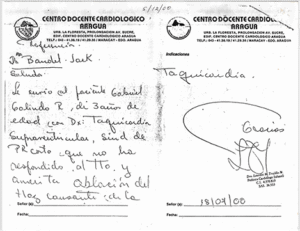 5/12/00
CENTRO DOCENTE CARDIOLOGICO
ARAGUA
URB. LA FLORESTA, PROLONGACION AV. SUCRE,
EDIF. CENTRO DOCENTE CARDIOLOGICO
MARACAY - EDO. ARAGUA
Referencia
Dr Bandel Jack
Saludo
Le envio al paciente Gabriel
Galindo R, de 3 años de
edad con Dx: Taquicardia
Supraventricular, sind de
PR corto que no ha
respondido al Tto. y
amerita ablación del
Haz causante de la
Señor(a)
Fecha
CENTRO DOCENTE CARDIOLOGICO
ARAGUA
URB. LA FLORESTA, PROLONGACION AV. SUCRE,
EDIF. CENTRO DOCENTE CARDIOLOGICO
MARACAY - EDO. ARAGUA
Indicaciones
Taquicardia.
Gracias
Señor(a)
Fecha 18/07/00